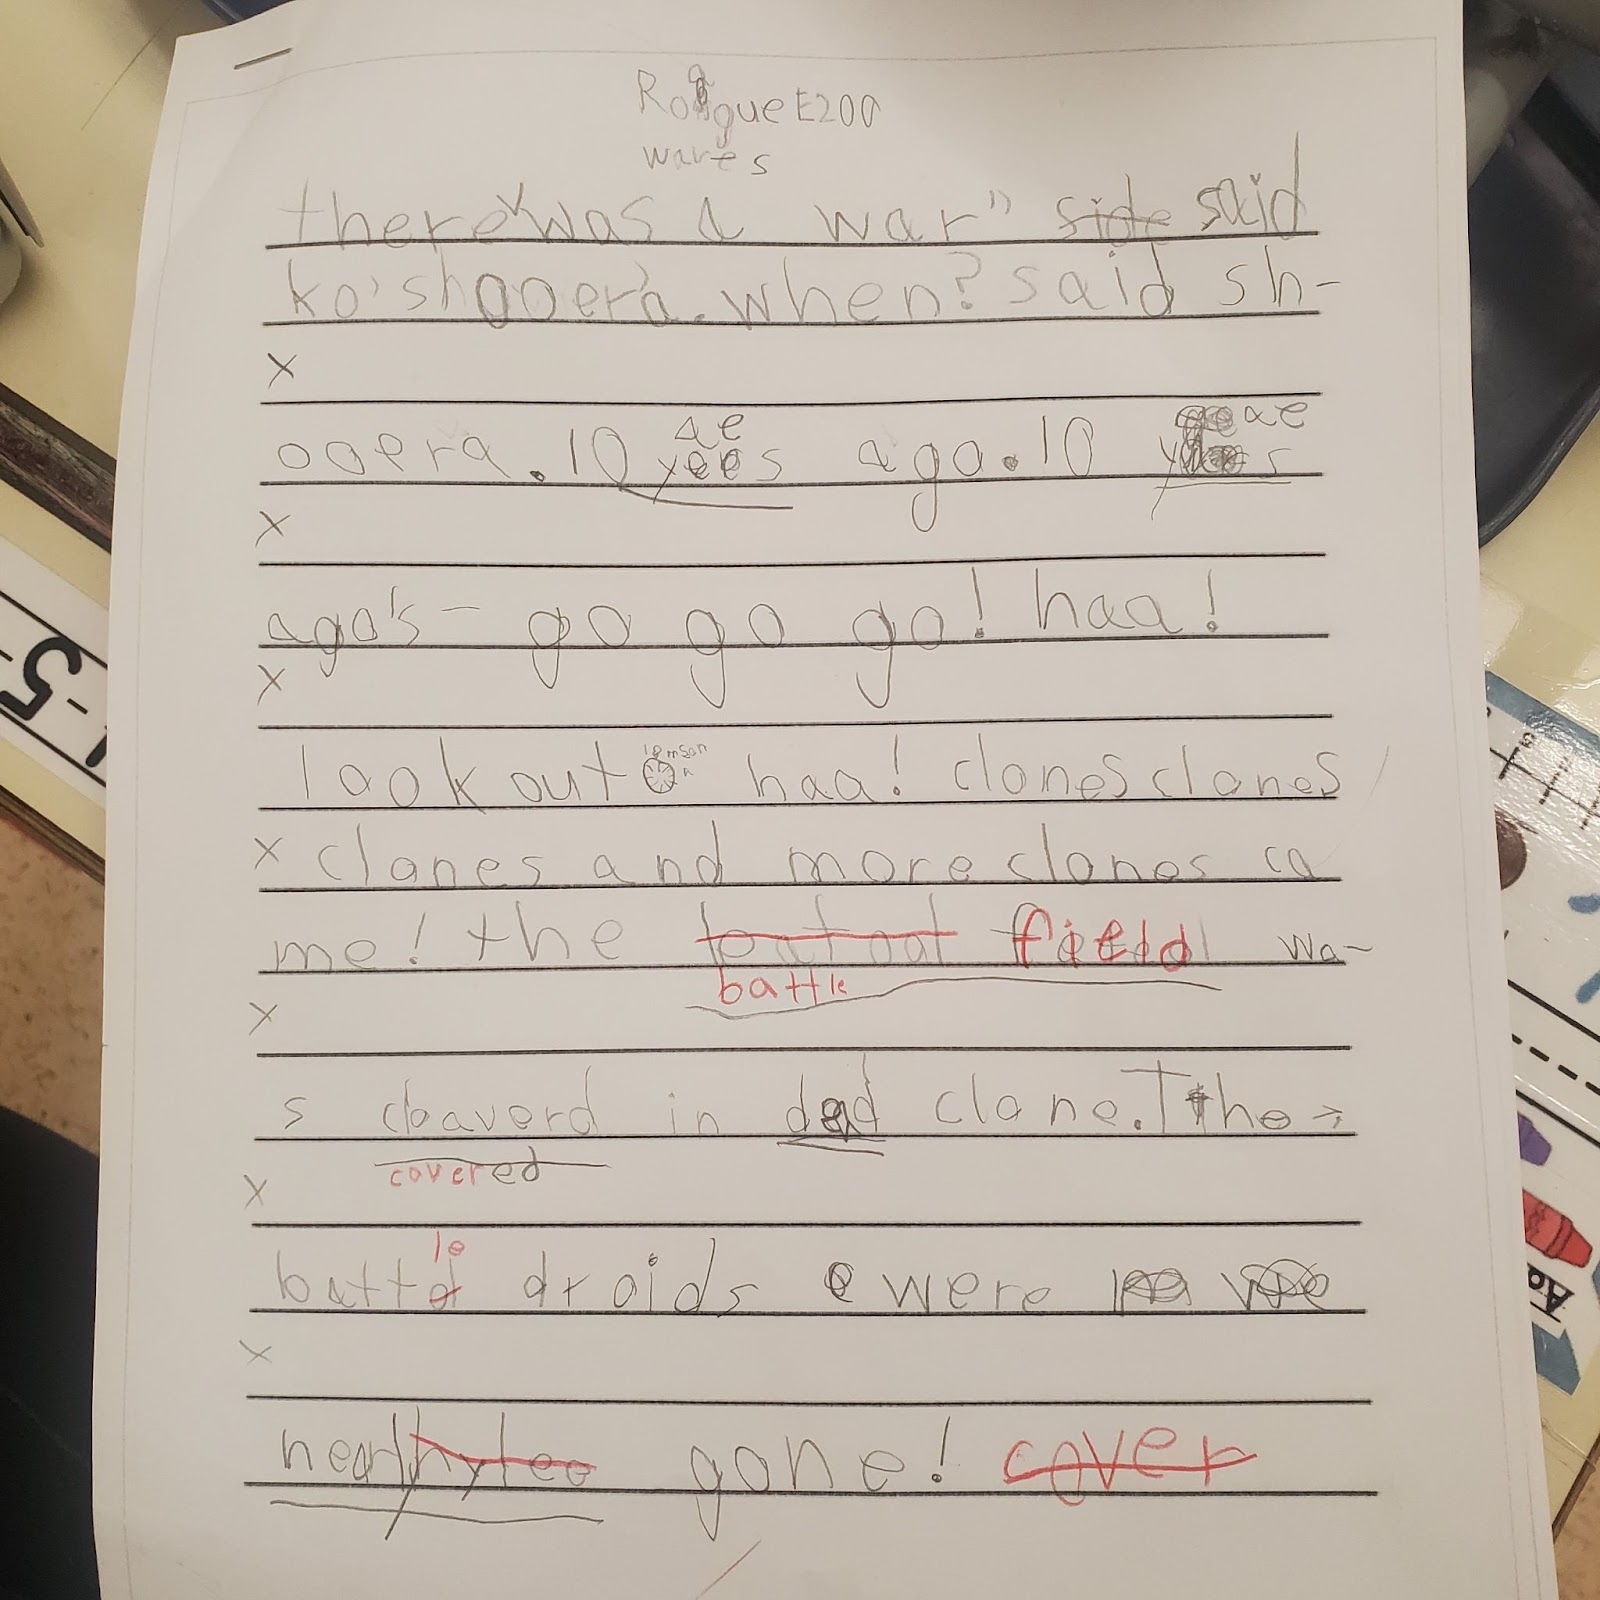 Rogue E200
wares
there was a war" side said
ko'shooera. when? said sh-
x
ooera. 10 yeaes ago. 10 yeaes
x
ago's - go go go! haa!
x
look out haa! clones clones
x clones and more clones ca
me! the field wa-
battle
x
s cloaverd in dead clone. The
covered
x
le
battd droids were
x
nearly gone! cover
5